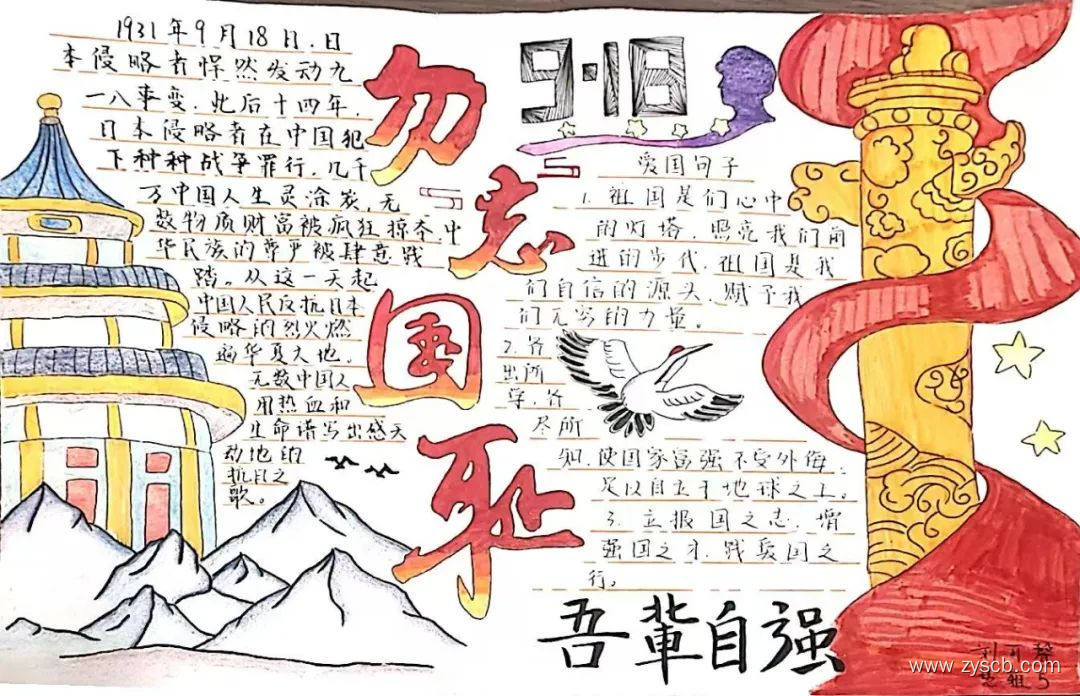 1931年9月18日，日
本侵略者悍然发动九
一八事变，此后十四年，
日本侵略者在中国犯
下种种战争罪行，几千
万中国人生灵涂炭，无
数物质财富被疯狂掠夺，中
华民族的尊严被肆意践
踏。从这一天起
中国人民反抗日本
侵略的烈火燃
遍华夏大地。
无数中国人
用热血和
生命谱写出感天
动地的
抗日之
歌。
勿忘国耻
9·18
爱国句子
1. 祖国是们心中
的灯塔，照亮我们前
进的步伐，祖国是我
们自信的源头，赋予我
们无穷的力量。
2. 各
出所
学，各
尽所
知，使国家富强不受外侮，
足以自立于地球之上。
3. 立报国之志，增
强国之才，践爱国之
行。
吾辈自强
www.zyscb.com